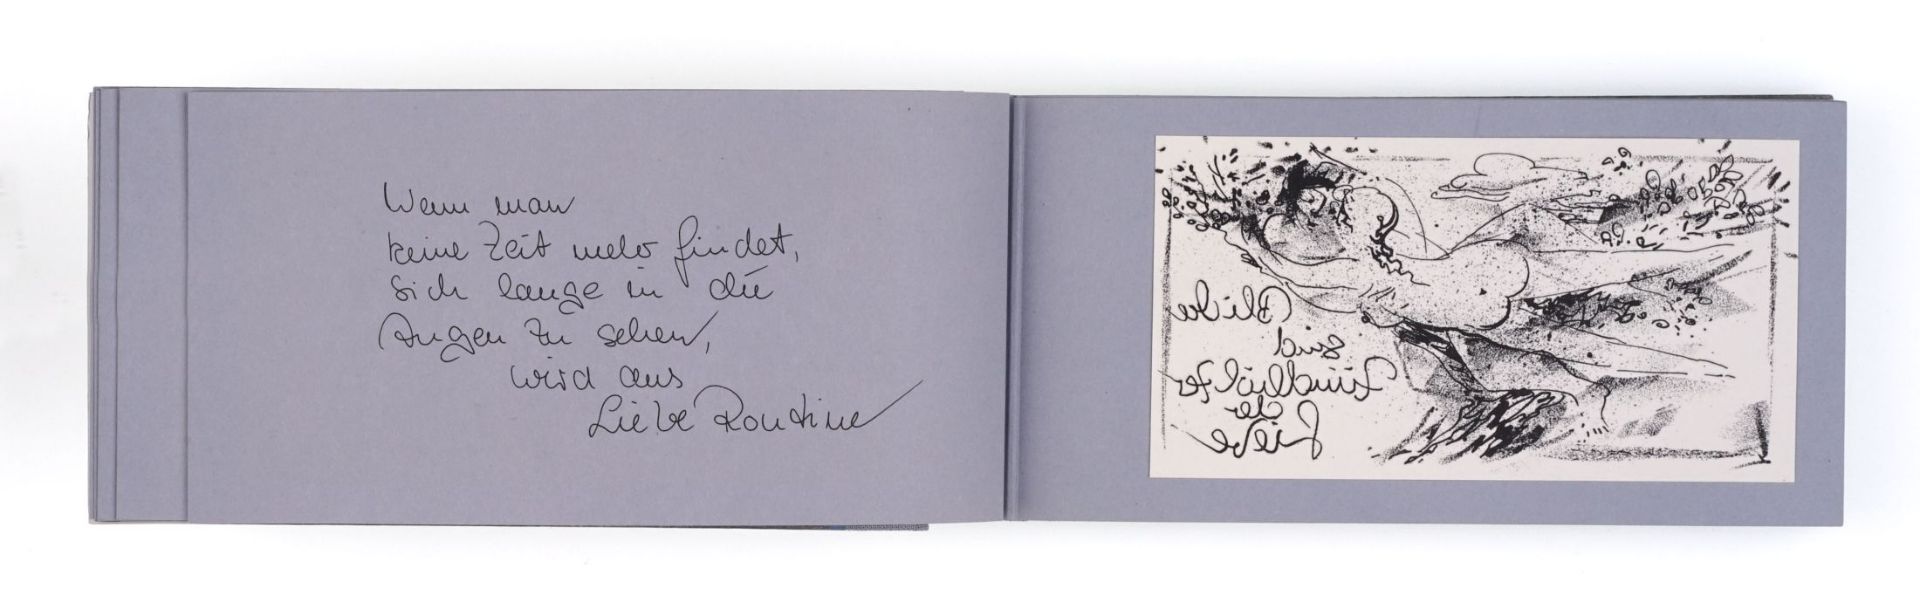 Wenn man
keine Zeit mehr findet,
sich lange in die
Augen zu sehen,
wird aus
Liebe Routine
Blicke
sind
Zündhölzer
der
Liebe